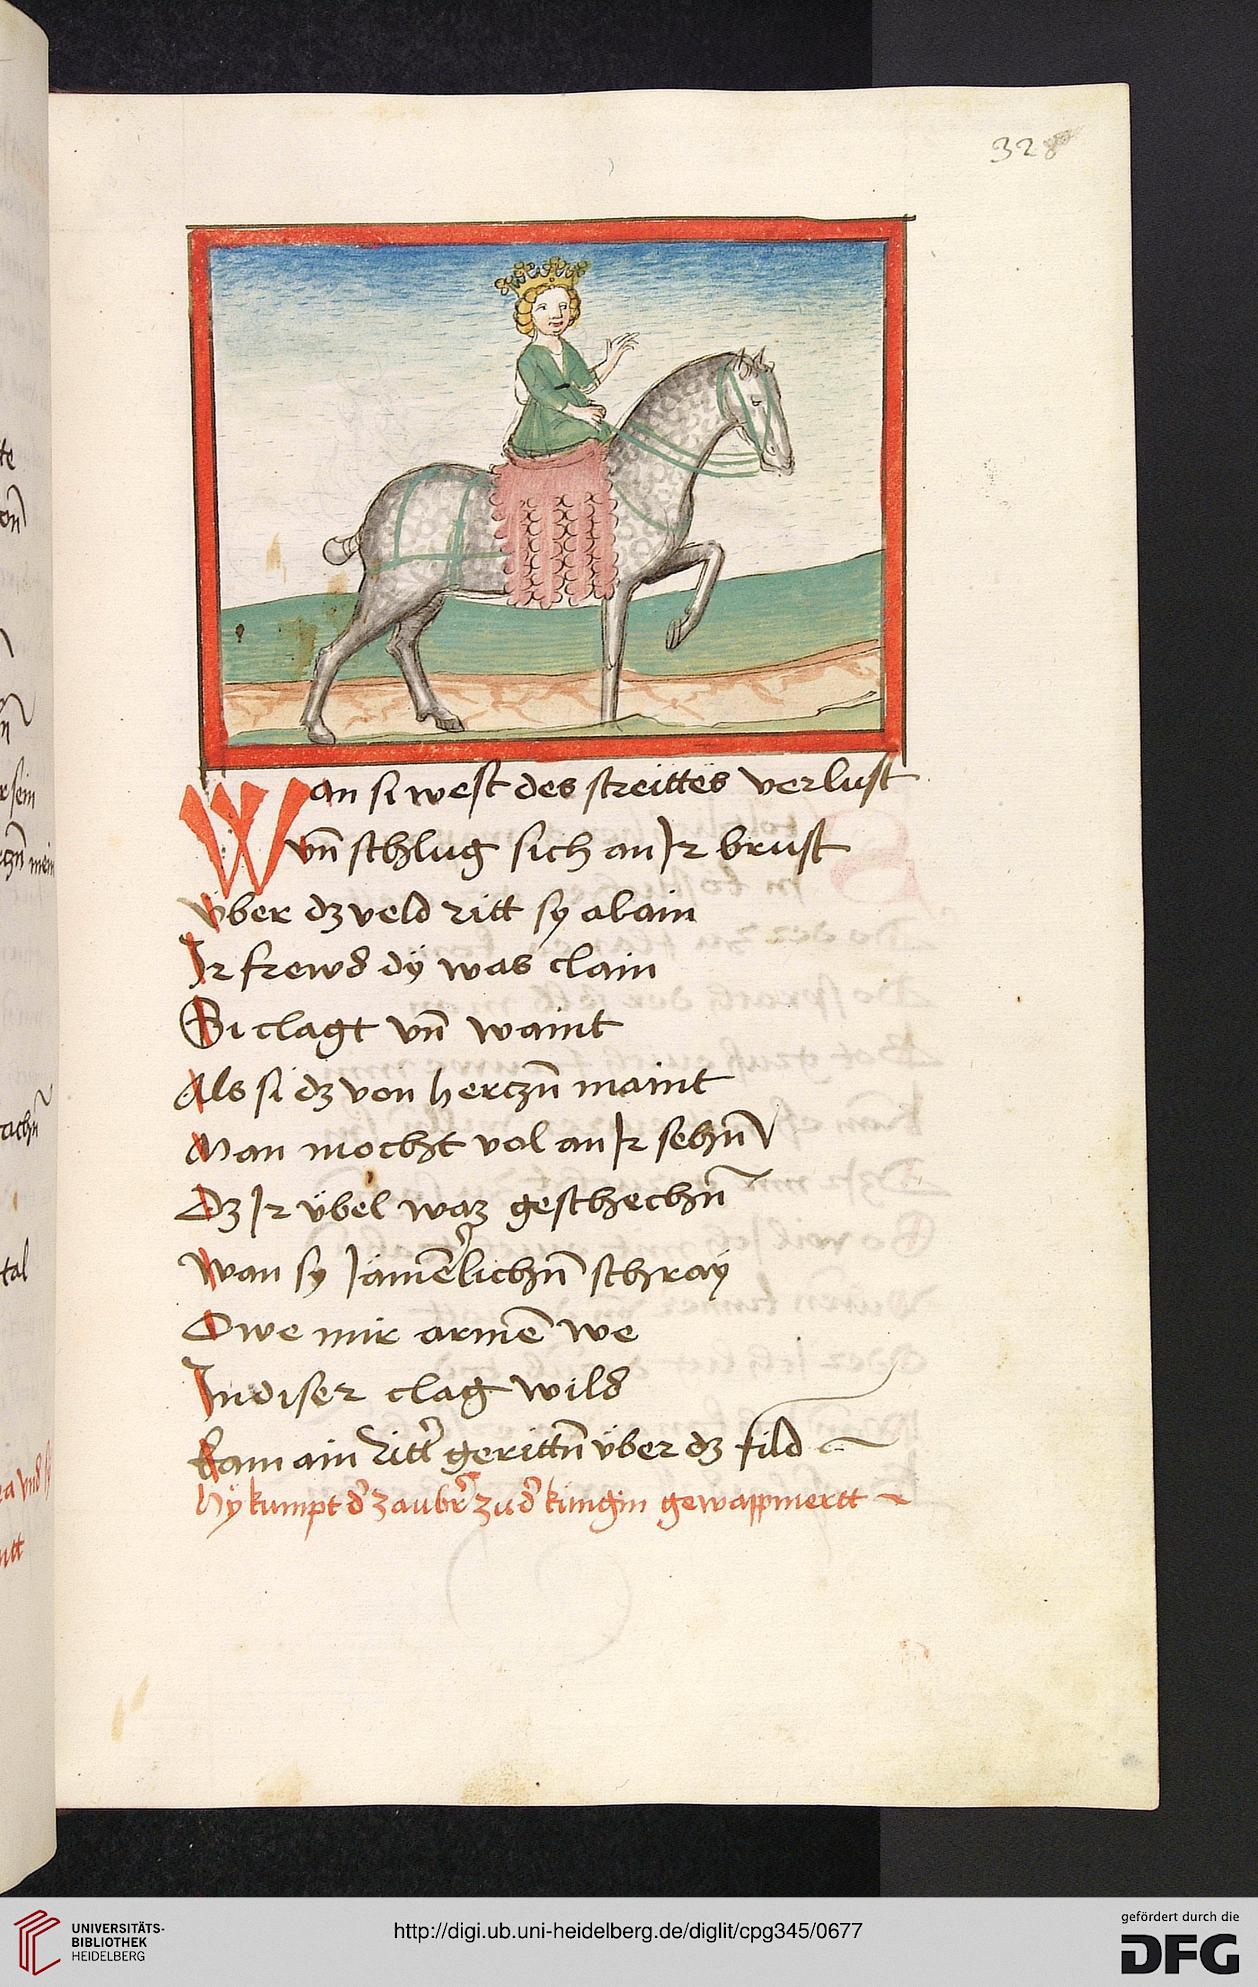 328
Wan si west des streittes verlust
vn̄ schlug sich an Jr brust
über dz veld ritt sy alain
Jr frewd dÿ was clain
Si clagt vn̄ waint
Als si dz von herczn̄ maint
Man mocht vol an Jr sehn̄
Dz Jr übel waz geschechn̄
Wan sy Jämerlichn̄ schray
Owe mir armē we
Jn diser clag wild
kam ain Ritt' gerittn̄ über dz fild
Hÿ kumpt d' zaubr' zu d' küngin gewappnertt
UNIVERSITÄTS-
BIBLIOTHEK
HEIDELBERG
http://digi.ub.uni-heidelberg.de/diglit/cpg345/0677
gefördert durch die
DFG